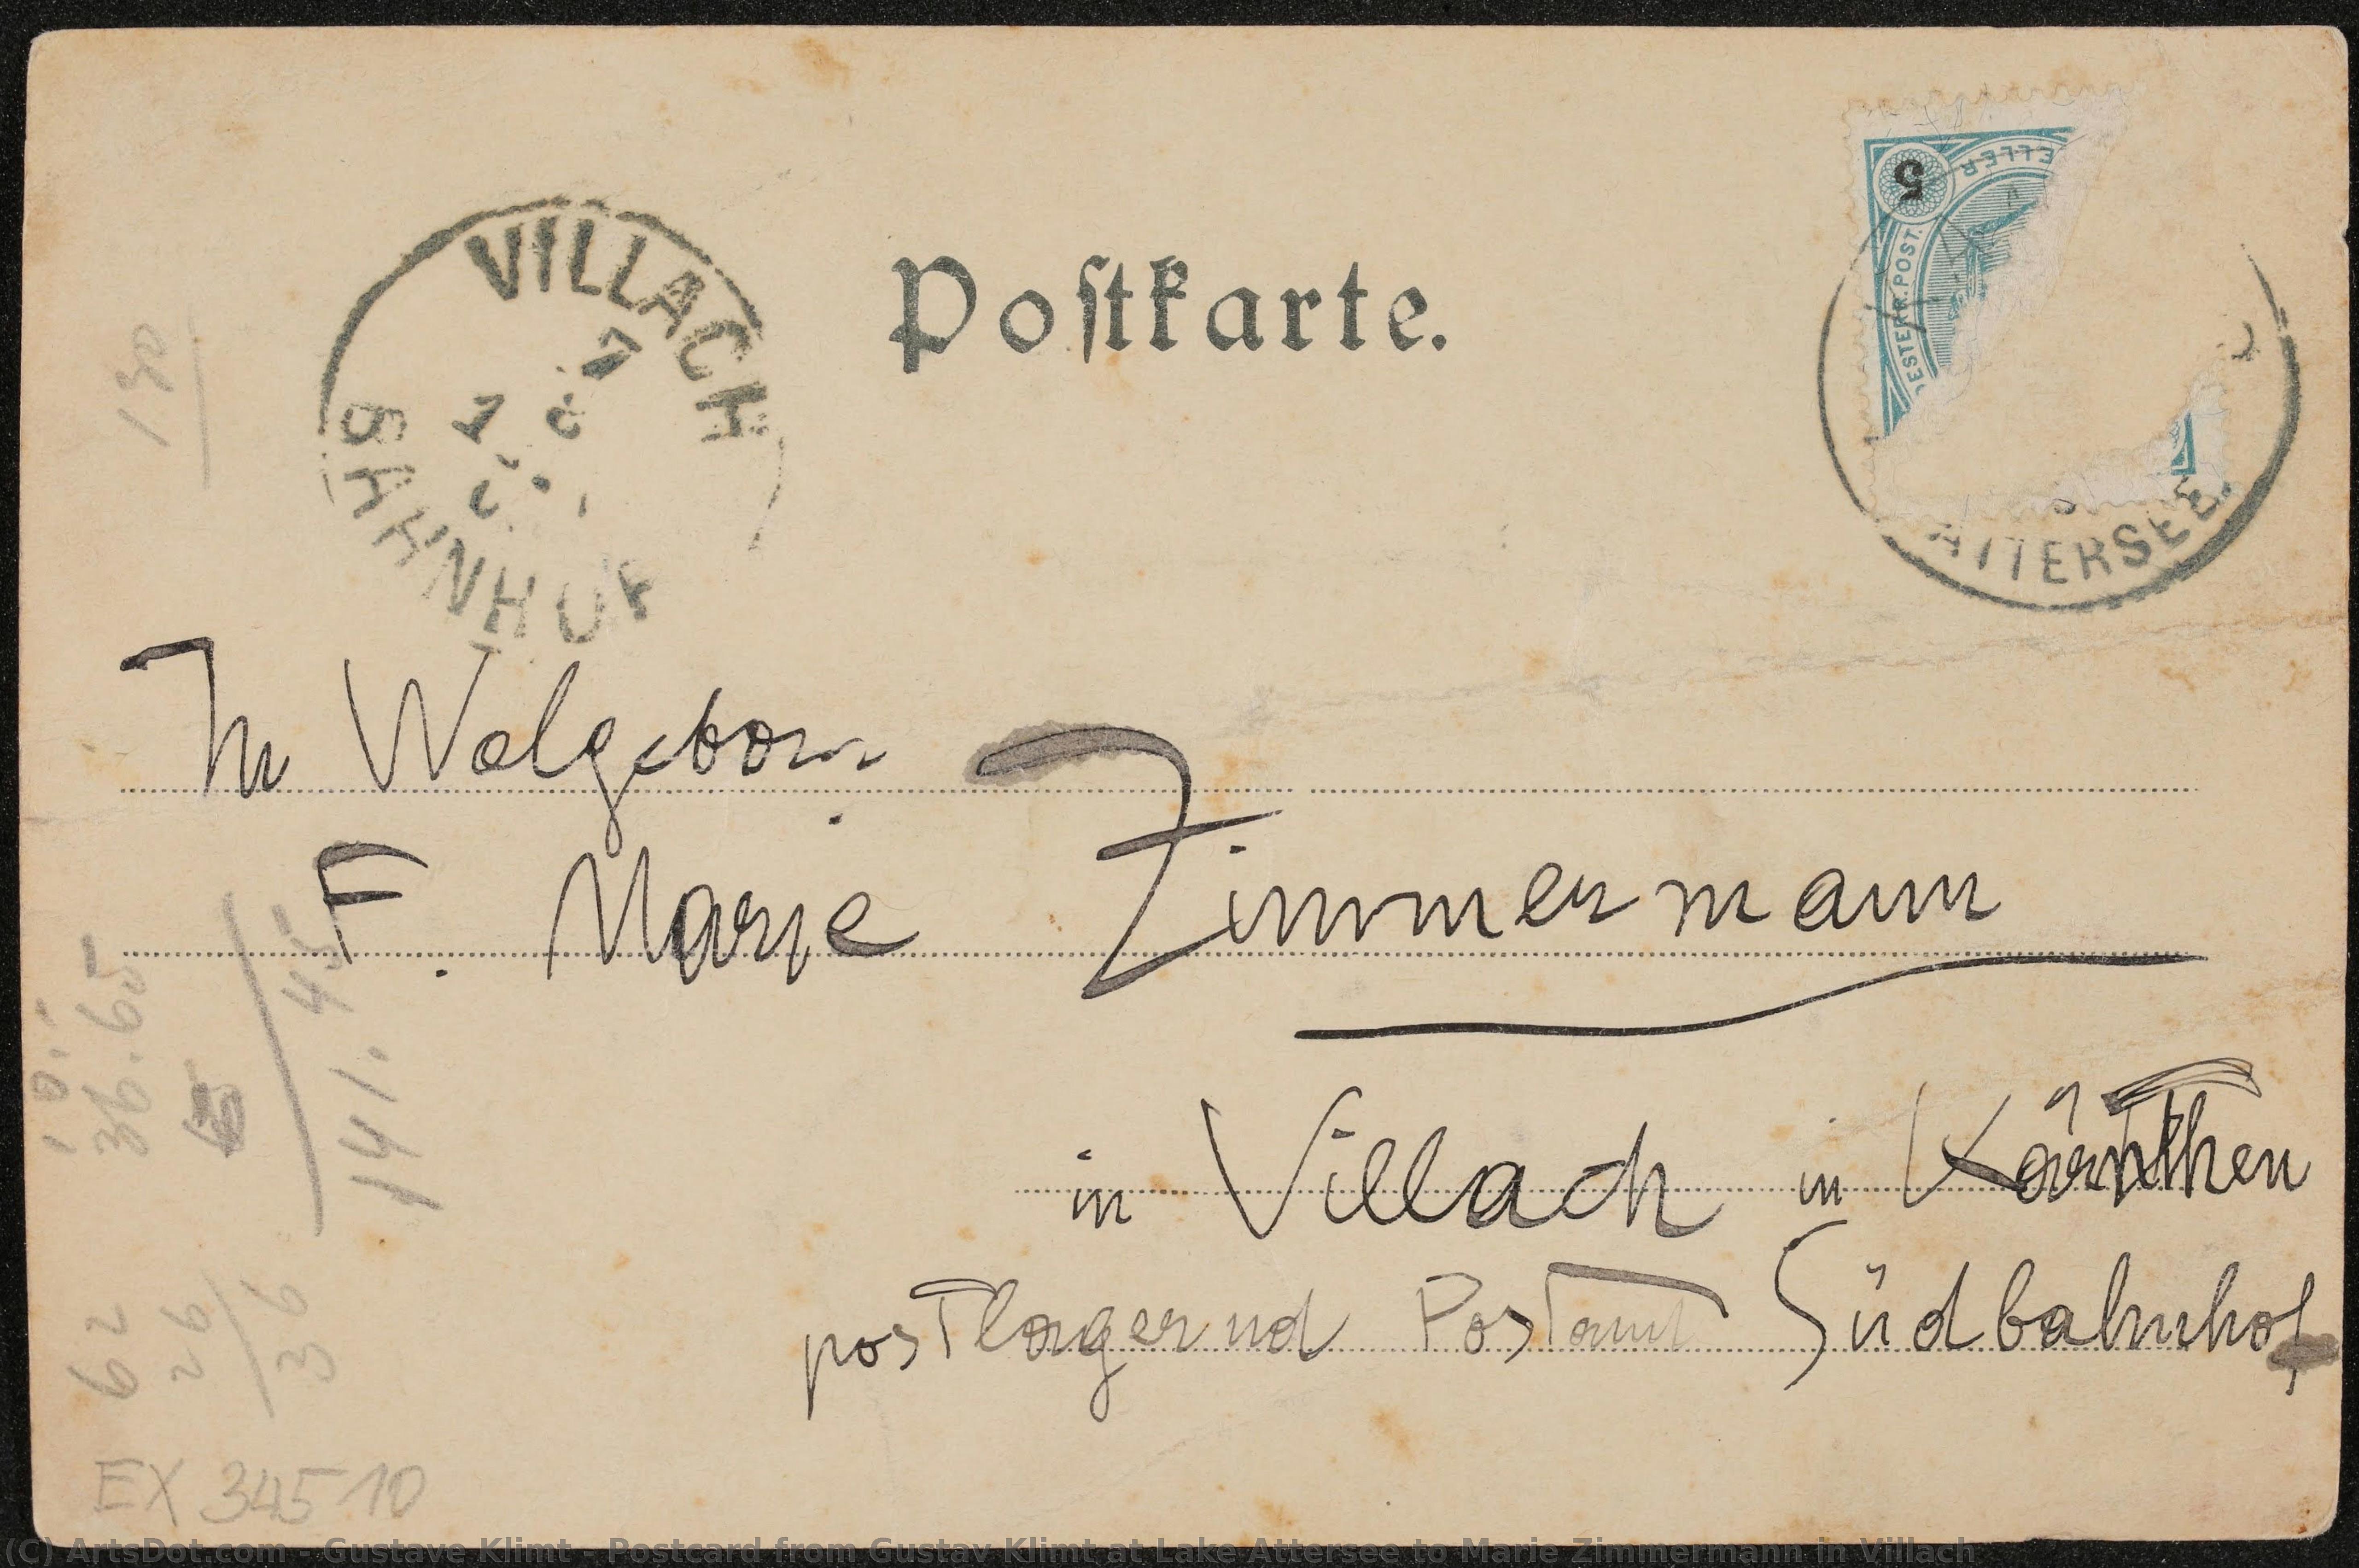 VILLACH
BAHNHOF
Postkarte.
5
ELLER
ESTERR. POST.
ATTERSEE.
130
Ih Wolgeborn
F. Marie Zimmermann
in Villach in Kärnthen
postlagernd Postamt Südbahnhof
36.65
45
141.
62
26
36
EX 34510
(C) ArtsDot.com - Gustave Klimt - Postcard from Gustav Klimt at Lake Attersee to Marie Zimmermann in Villach